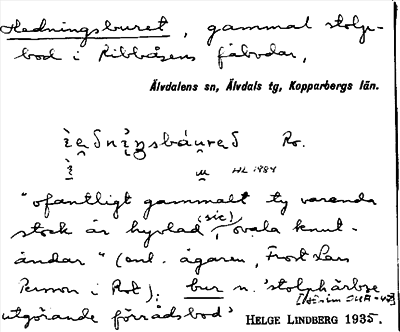 Hedningsburet, gammal stolp-
bod i Ribbåsens fäbodar,
Älvdalens sn, Älvdals tg, Kopparbergs län.
Ro.
HL 1984
"ofantligt gammalt ty varenda
stock är hyvlad (sic), ovala knut-
ändar" (enl. ägaren, Frost Lars
i Rot); bur n. 'stolphärbre
utgörande förrådsbod' HELGE LINDBERG 1935.